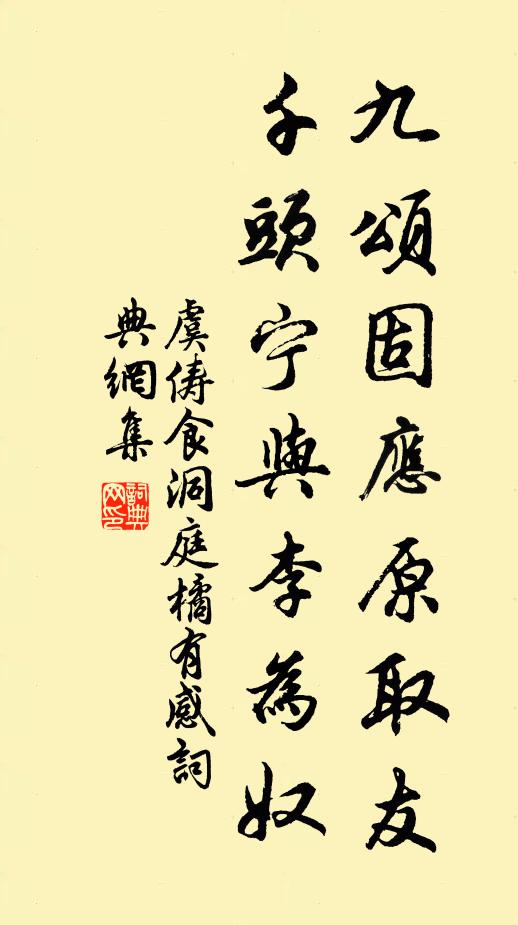 九頌固應原取友
千頭宁與李為奴
虞儔食洞庭橘有感詞
典網集
詞典网印